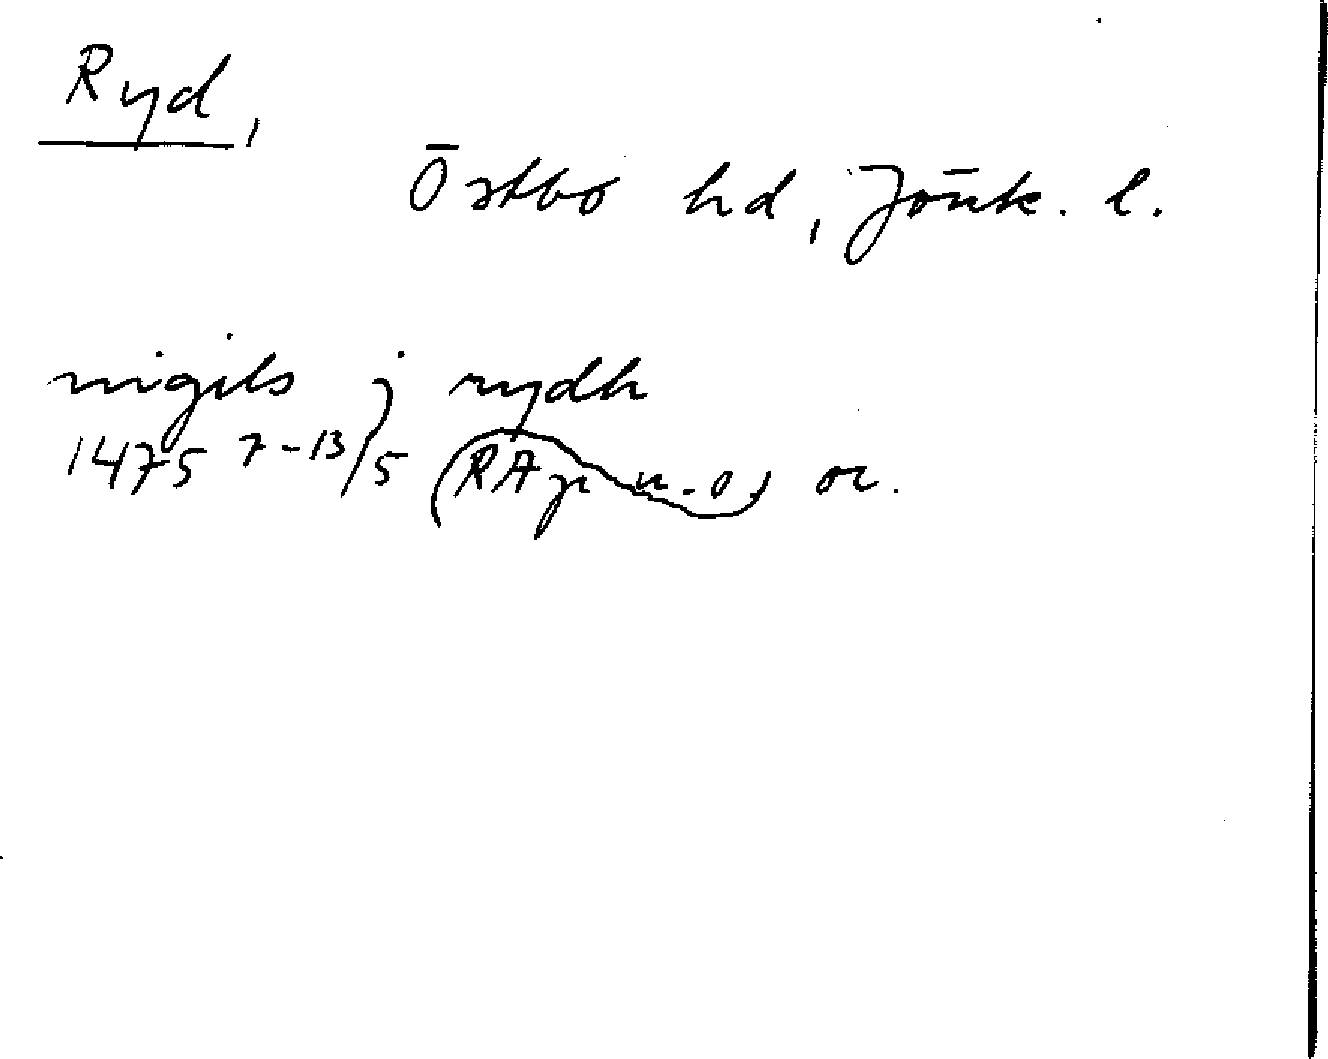 Ryd,
Östbo hd, Jönk. l.
nigils j rydh
1475 7-13/5 (RAp u.o) or.